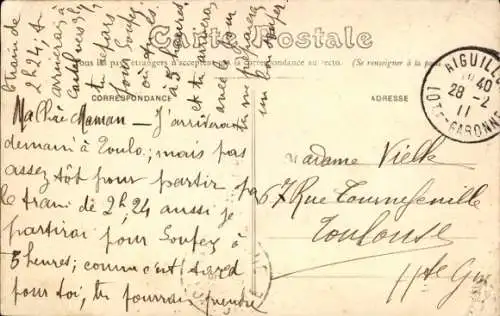 Carte Postale
Tous les pays étrangers n'acceptent pas la correspondance au recto. (Se renseigner à la poste)
CORRESPONDANCE
ADRESSE
AIGUILL
1040
28-2
11
LOT-ET-GARONNE
Ma Chère Maman – J'arriverai
demain à Toulo.; mais pas
assez tôt pour partir pa
le train de 2h,24 aussi je
partirai pour Soupex à
5 heures; comme c'est tard
pour toi, tu pourrais prendre
le train de
2h 24, tu
arrivera à
tu
pour Soupex
où
à 5 heures
et tu
avec
me préparer
un bon
Madame Vielle
67 Rue Tournefeuille
Toulouse
Hte Gne